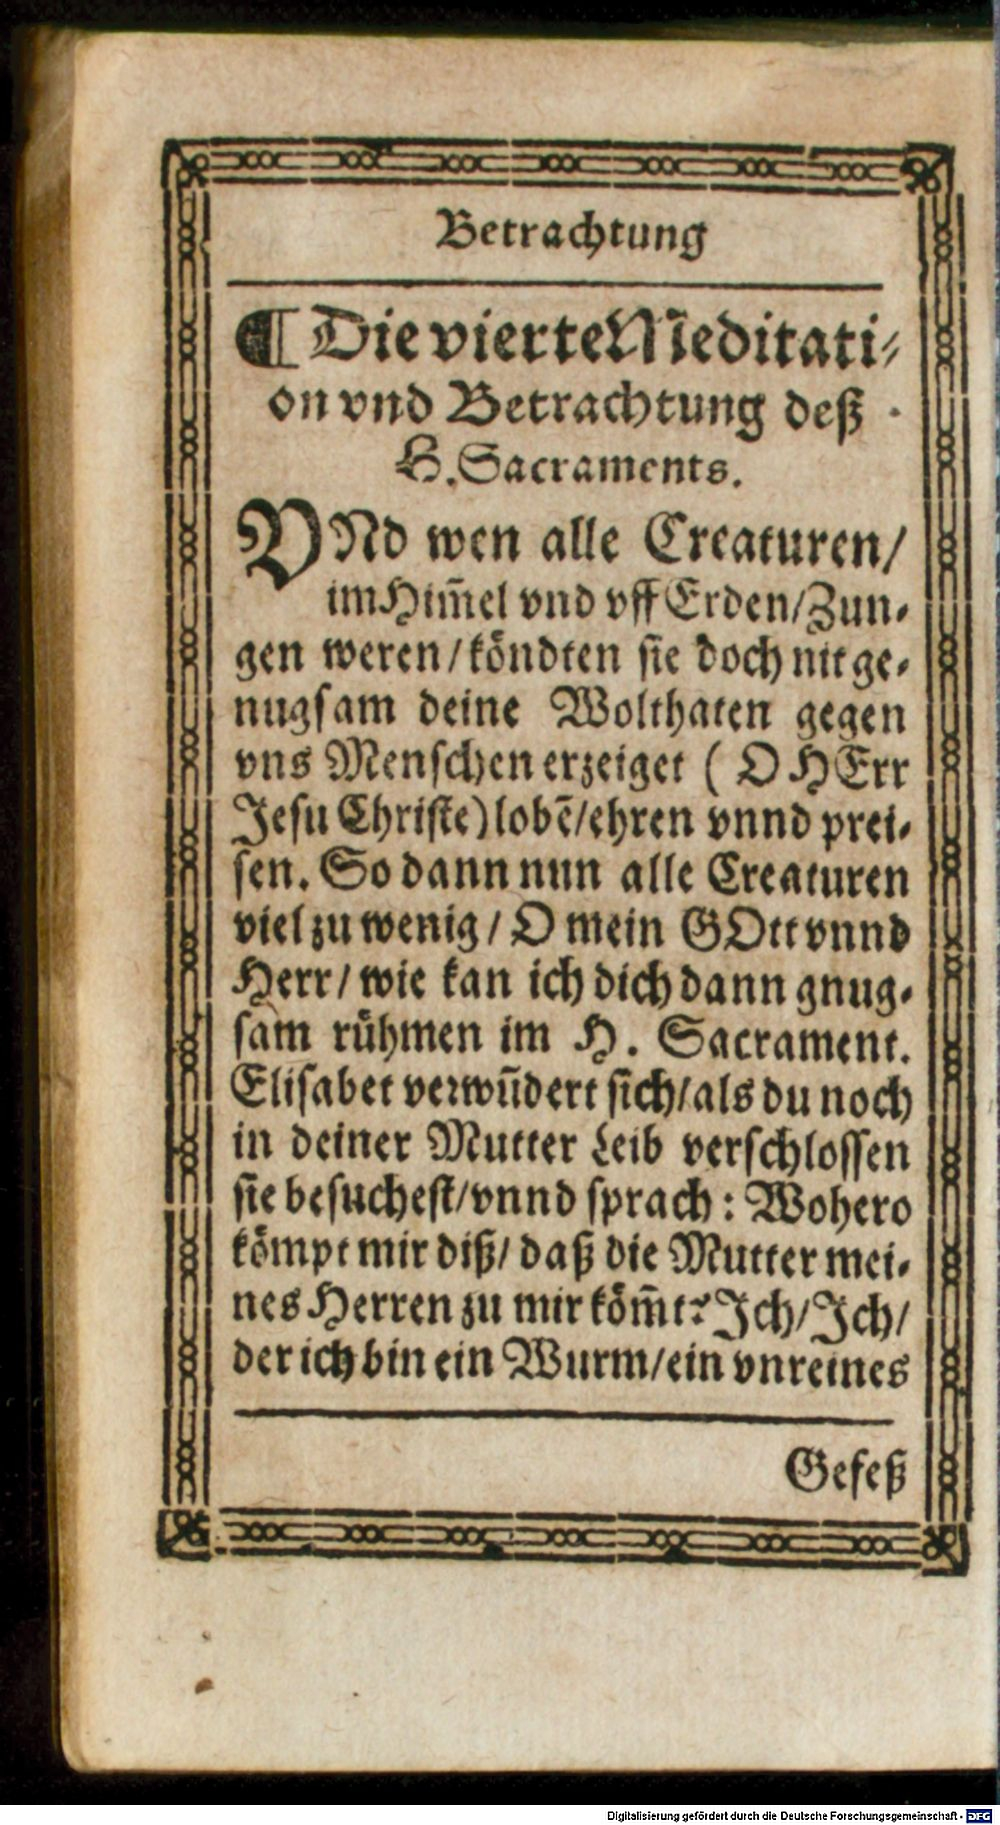 Betrachtung
¶ Die vierte Meditati⸗
on vnd Betrachtung deß
H. Sacraments.
VNd wen alle Creaturen/
im Him̃el vnd vff Erden/Zun⸗
gen weren/köndten sie doch nit ge⸗
nugsam deine Wolthaten gegen
vns Menschen erzeiget ( O HErr
Jesu Christe) lobē/ehren vnnd prei⸗
sen. So dann nun alle Creaturen
viel zu wenig/ O mein GOtt vnnd
Herr/ wie kan ich dich dann gnug⸗
sam rühmen im H. Sacrament.
Elisabet verwũdert sich/als du noch
in deiner Mutter Leib verschlossen
sie besuchest/vnnd sprach: Wohero
kömpt mir diß/ daß die Mutter mei⸗
nes Herren zu mir köm̃t? Ich/Ich/
der ich bin ein Wurm/ein vnreines
Gefeß
Digitalisierung gefördert durch die Deutsche Forschungsgemeinschaft - DFG